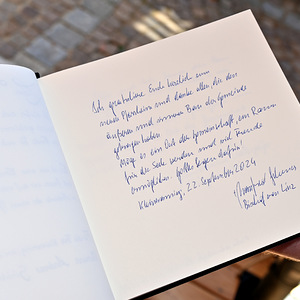 Ich gratuliere Euch herzlich zum
neuen Pfarrheim und danke allen, die den
äußeren und inneren Bau der Gemeinde
mitgetragen haben.
Möge es ein Ort der Gemeinschaft, ein Raum
für die Seele werden und viel Freude
ermöglichen. Gottes Segen dafür!
22. September 2024
Manfred Scheuer
Bischof von Linz